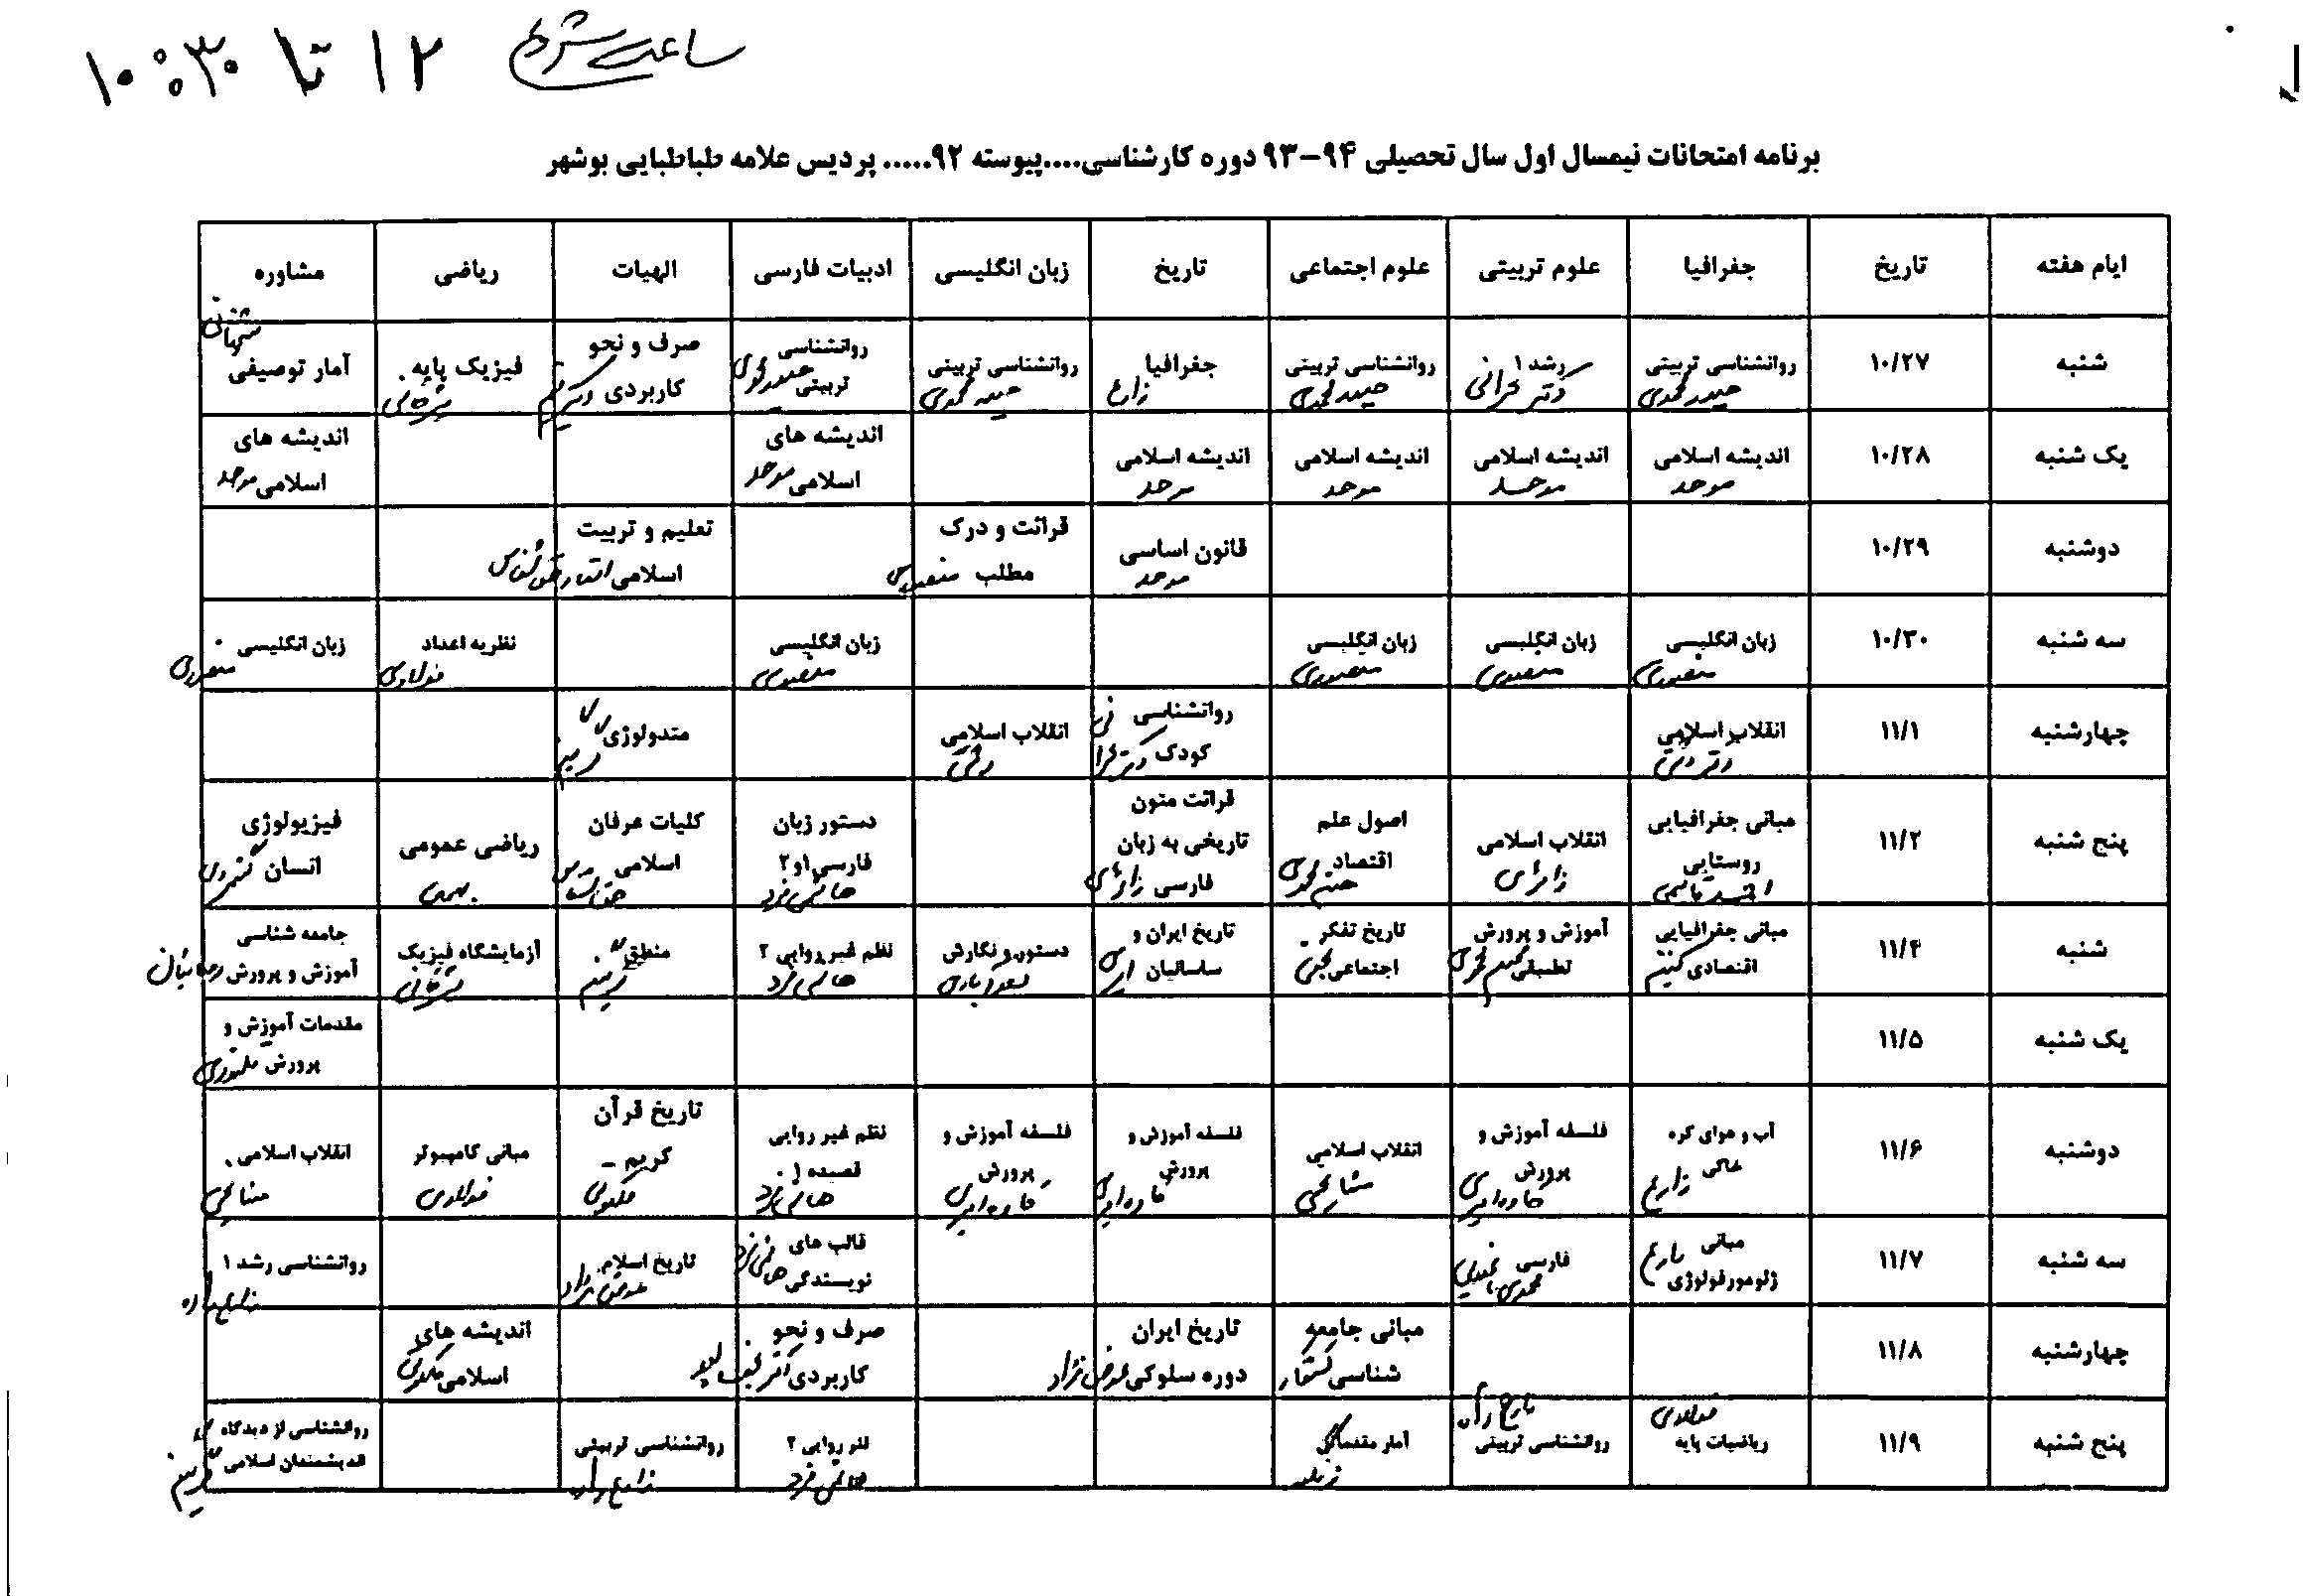 ساعت شروع ۱۰:۳۰ تا ۱۲
برنامه امتحانات نیمسال اول سال تحصیلی ۹۴-۹۳ دوره کارشناسی....پیوسته ۹۲..... پردیس علامه طباطبایی بوشهر
ایام هفته تاریخ جغرافیا علوم تربیتی علوم اجتماعی تاریخ زبان انگلیسی ادبیات فارسی الهیات ریاضی مشاوره
شنبه ۱۰/۲۷ روانشناسی تربیتی رشد ۱ روانشناسی تربیتی جغرافیا روانشناسی تربیتی روانشناسی تربیتی صرف و نحو کاربردی فیزیک پایه آمار توصیفی
حیدر محمدی حیدر محمدی زارع حیدر محمدی حیدر محمدی
یک شنبه ۱۰/۲۸ اندیشه اسلامی اندیشه اسلامی اندیشه اسلامی اندیشه اسلامی اندیشه های اسلامی اندیشه های اسلامی
موحد موحد موحد موحد موحد موحد
دوشنبه ۱۰/۲۹ قانون اساسی قرائت و درک مطلب تعلیم و تربیت اسلامی
موحد منصوری
سه شنبه ۱۰/۳۰ زبان انگلیسی زبان انگلیسی زبان انگلیسی زبان انگلیسی نظریه اعداد زبان انگلیسی
منصوری منصوری منصوری منصوری فولادی منصوری
چهارشنبه ۱۱/۱ انقلاب اسلامی روانشناسی کودک انقلاب اسلامی متدولوژی
پنج شنبه ۱۱/۲ مبانی جغرافیایی روستایی انقلاب اسلامی اصول علم اقتصاد قرائت متون تاریخی به زبان فارسی دستور زبان فارسی ۱و۲ کلیات عرفان اسلامی ریاضی عمومی فیزیولوژی انسان
زائری زائری
شنبه ۱۱/۴ مبانی جغرافیایی اقتصادی آموزش و پرورش تطبیقی تاریخ تفکر اجتماعی تاریخ ایران و ساسانیان دستور و نگارش نظم غیر روایی ۲ منطق آزمایشگاه فیزیک جامعه شناسی آموزش و پرورش
یک شنبه ۱۱/۵ مقدمات آموزش و پرورش
دوشنبه ۱۱/۶ آب و هوای کره خاکی فلسفه آموزش و پرورش انقلاب اسلامی فلسفه آموزش و پرورش فلسفه آموزش و پرورش نظم غیر روایی قصیده ۱ تاریخ قرآن کریم مبانی کامپیوتر انقلاب اسلامی
زارع فولادی
سه شنبه ۱۱/۷ مبانی ژئومورفولوژی فارسی قالب های نویسندگی تاریخ اسلام روانشناسی رشد ۱
زارع
چهارشنبه ۱۱/۸ مبانی جامعه شناسی تاریخ ایران دوره سلوکی صرف و نحو کاربردی اندیشه های اسلامی
عوض نژاد
پنج شنبه ۱۱/۹ ریاضیات پایه روانشناسی تربیتی آمار مقدماتی نثر روایی ۲ روانشناسی تربیتی روانشناسی از دیدگاه اندیشمندان اسلامی
فولادی